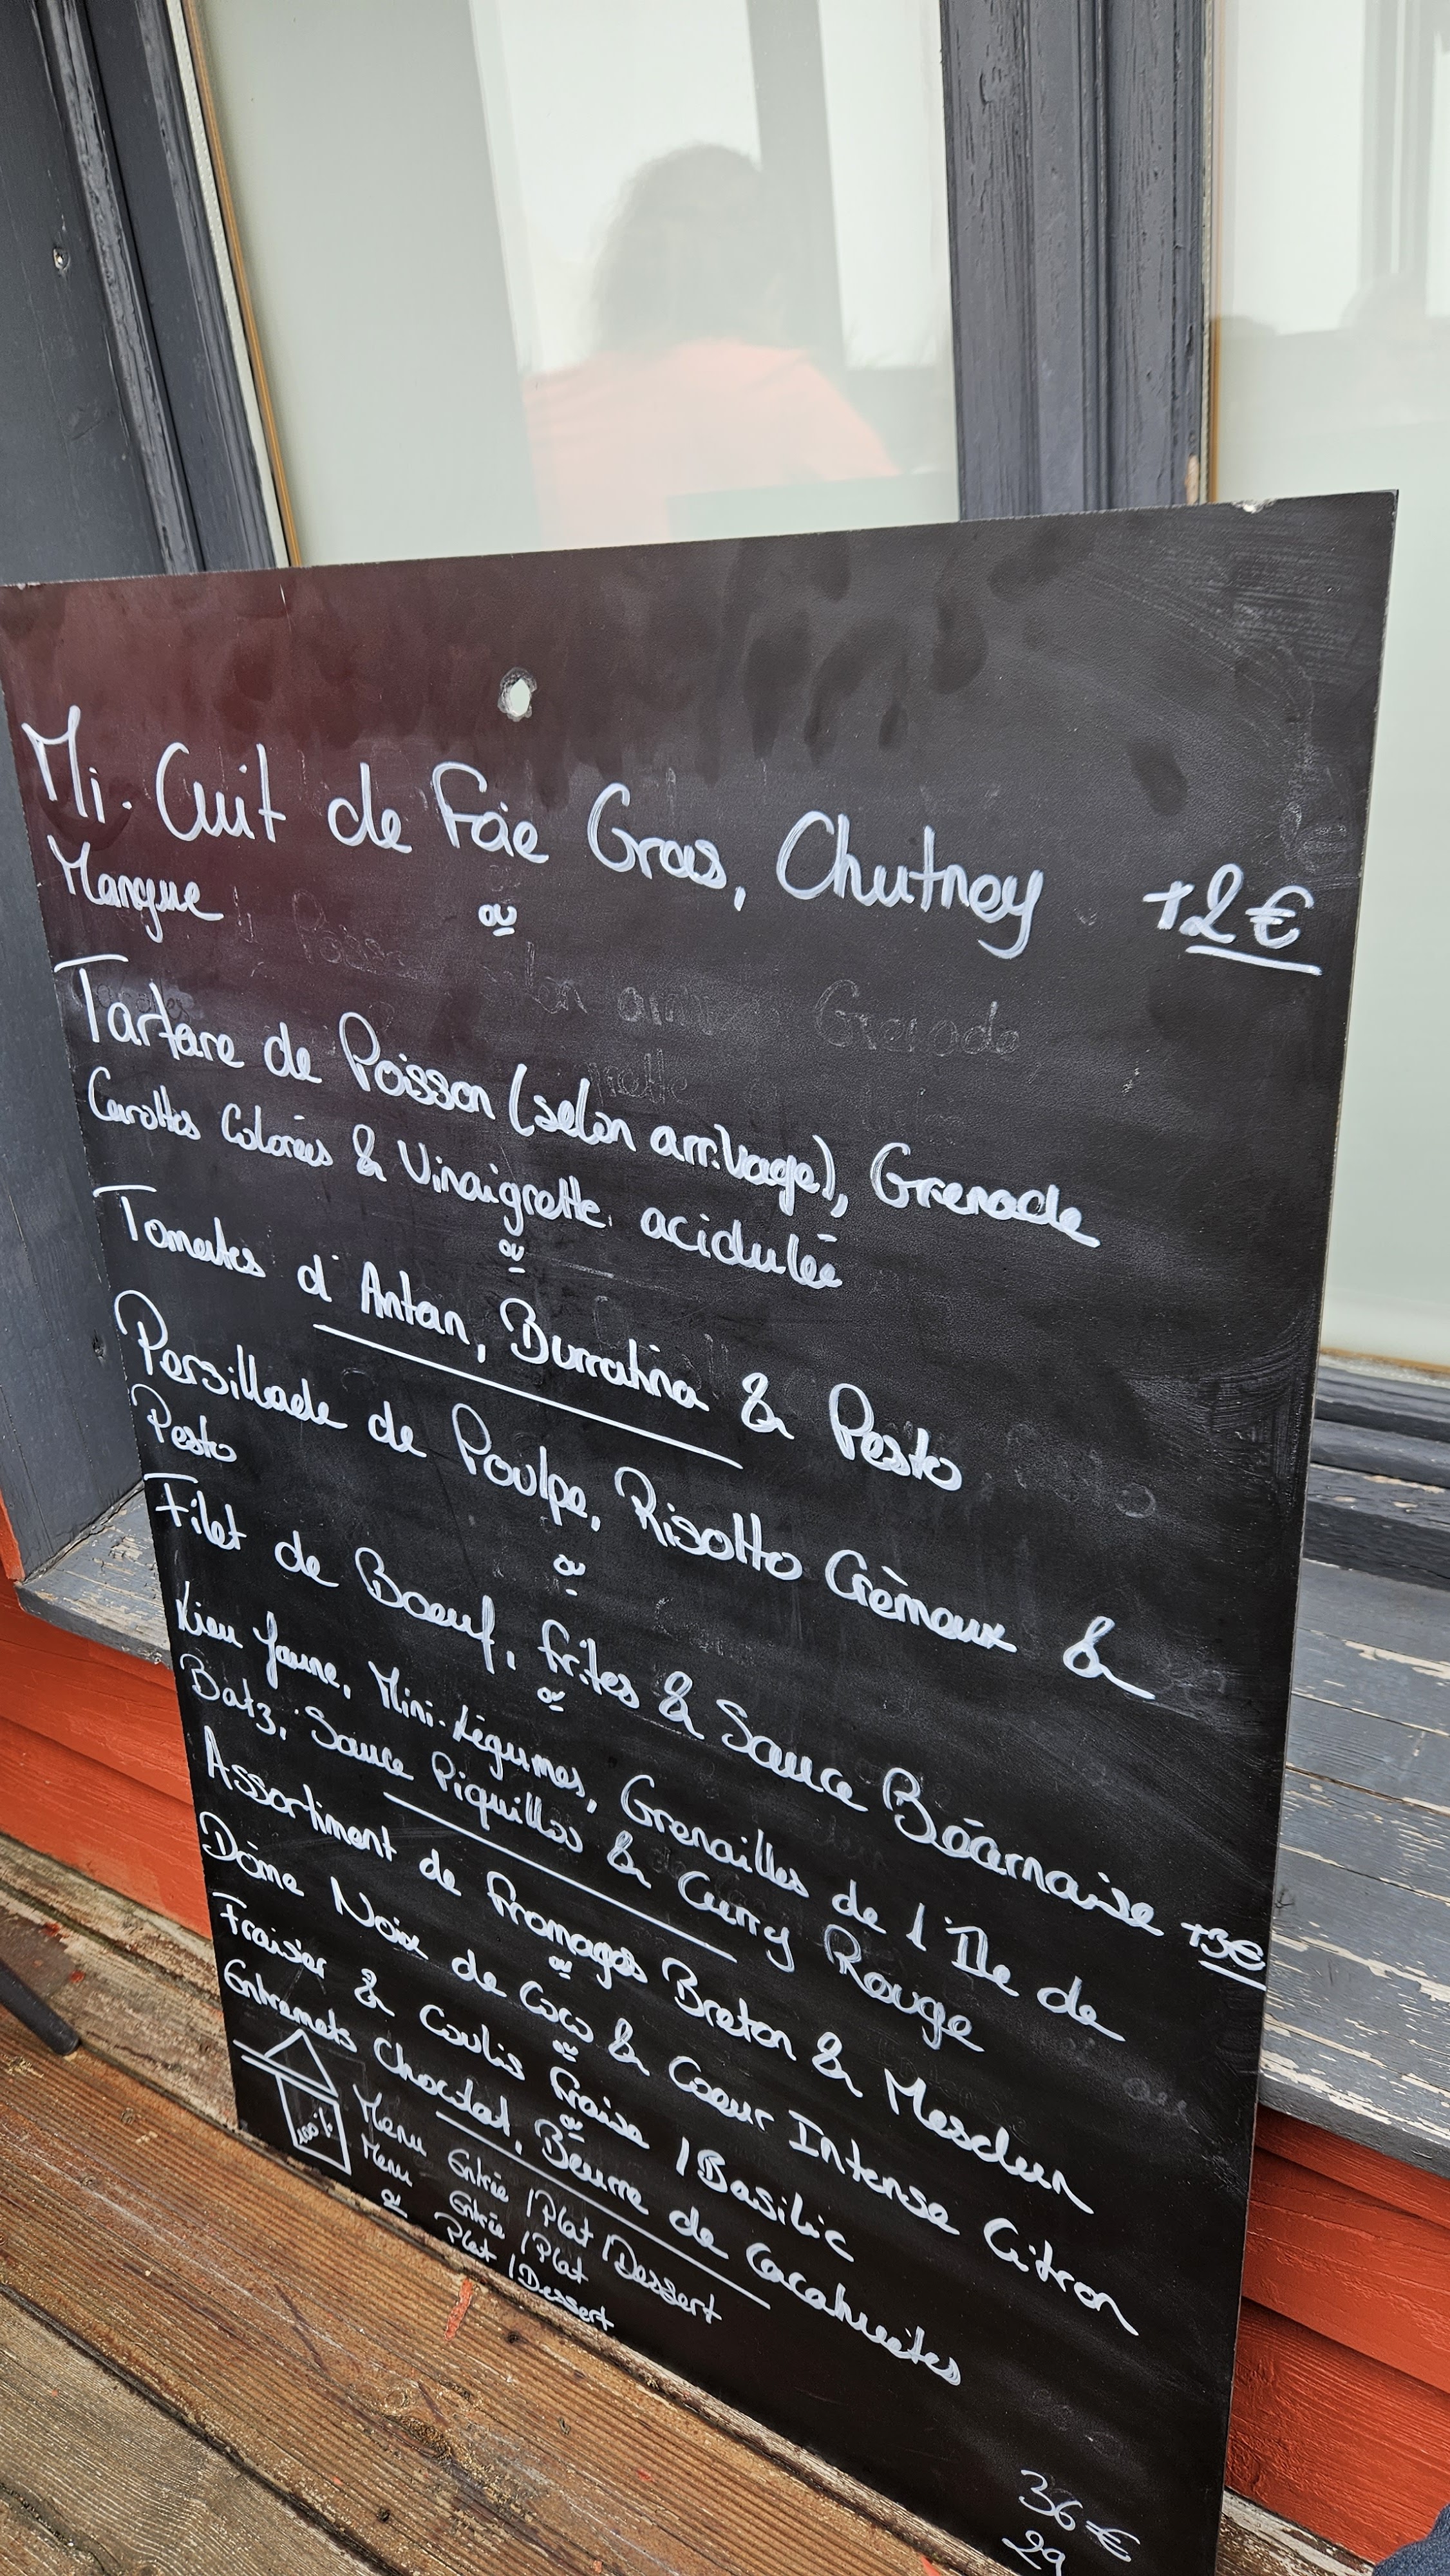 Mi-Cuit de Foie Gras, Chutney +2€
Mangue
ou
Tartare de Poisson (selon arrivage), Grenade
Carottes Colorées & Vinaigrette acidulée
ou
Tomates d'Antan, Burratina & Pesto
Persillade de Poulpe, Risotto Crèmeux &
Pesto
ou
Filet de Boeuf, frites & Sauce Béarnaise +3€
ou
Lieu Jaune, Mini-Légumes, Grenailles de l'Ile de
Batz, Sauce Piquillos & Curry Rouge
Assortiment de Fromages Breton & Mesclun
ou
Dôme Noix de Coco & Coeur Intense Citron
ou
Fraisier & Coulis Fraise / Basilic
ou
Entremets Chocolat, Beurre de Cacahuètes
100%
Menu Entrée / Plat / Dessert 36€
Menu Entrée / Plat 29
ou Plat / Dessert